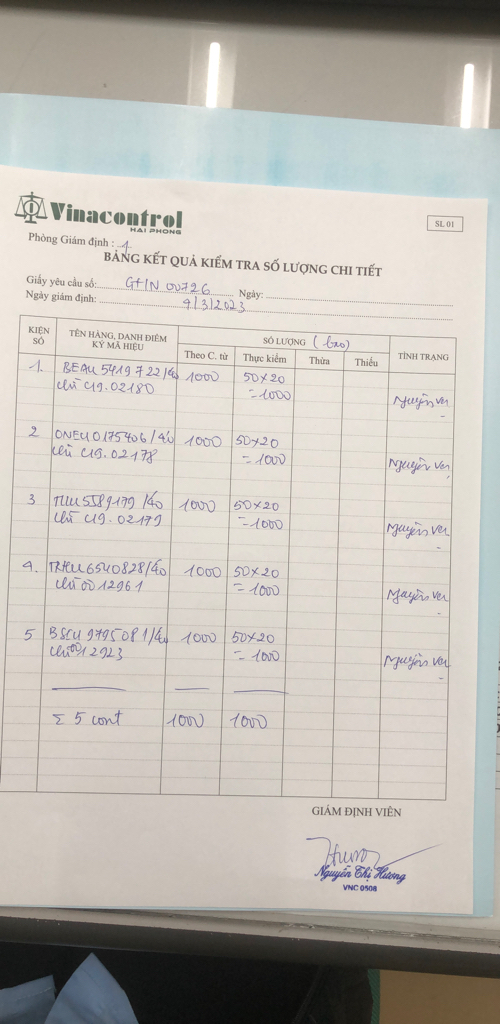 Vinacontrol
HAI PHONG
SL 01
Phòng Giám định : 1
BẢNG KẾT QUẢ KIỂM TRA SỐ LƯỢNG CHI TIẾT
Giấy yêu cầu số: G+IN 00726 Ngày:
Ngày giám định: 9/3/2023
KIỆN SỐ TÊN HÀNG, DANH ĐIỂM KÝ MÃ HIỆU SỐ LƯỢNG (bao) TÌNH TRẠNG
Theo C. từ Thực kiểm Thừa Thiếu
1. BEAU 5419722/40 1000 50×20
chì C19.02180 = 1000 Nguyên vẹn
2 ONEU 0175406/40 1000 50×20
chì C19.02178 = 1000 Nguyên vẹn
3 5589179/40 1000 50×20
chì C19.02179 = 1000 Nguyên vẹn
4. 6540828/40 1000 50×20
chì 0012961 = 1000 Nguyên vẹn
5 9795081/40 1000 50×20
chì 0012923 = 1000 Nguyên vẹn
Σ 5 cont 1000 1000
GIÁM ĐỊNH VIÊN
Nguyễn Thị Hương
VNC 0508